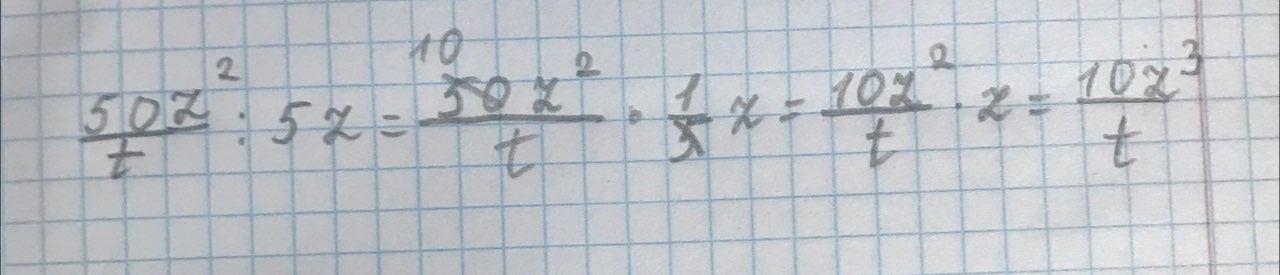 50z²/t : 5z = 10 50z²/t · 1/5 z = 10z²/t · z = 10z³/t